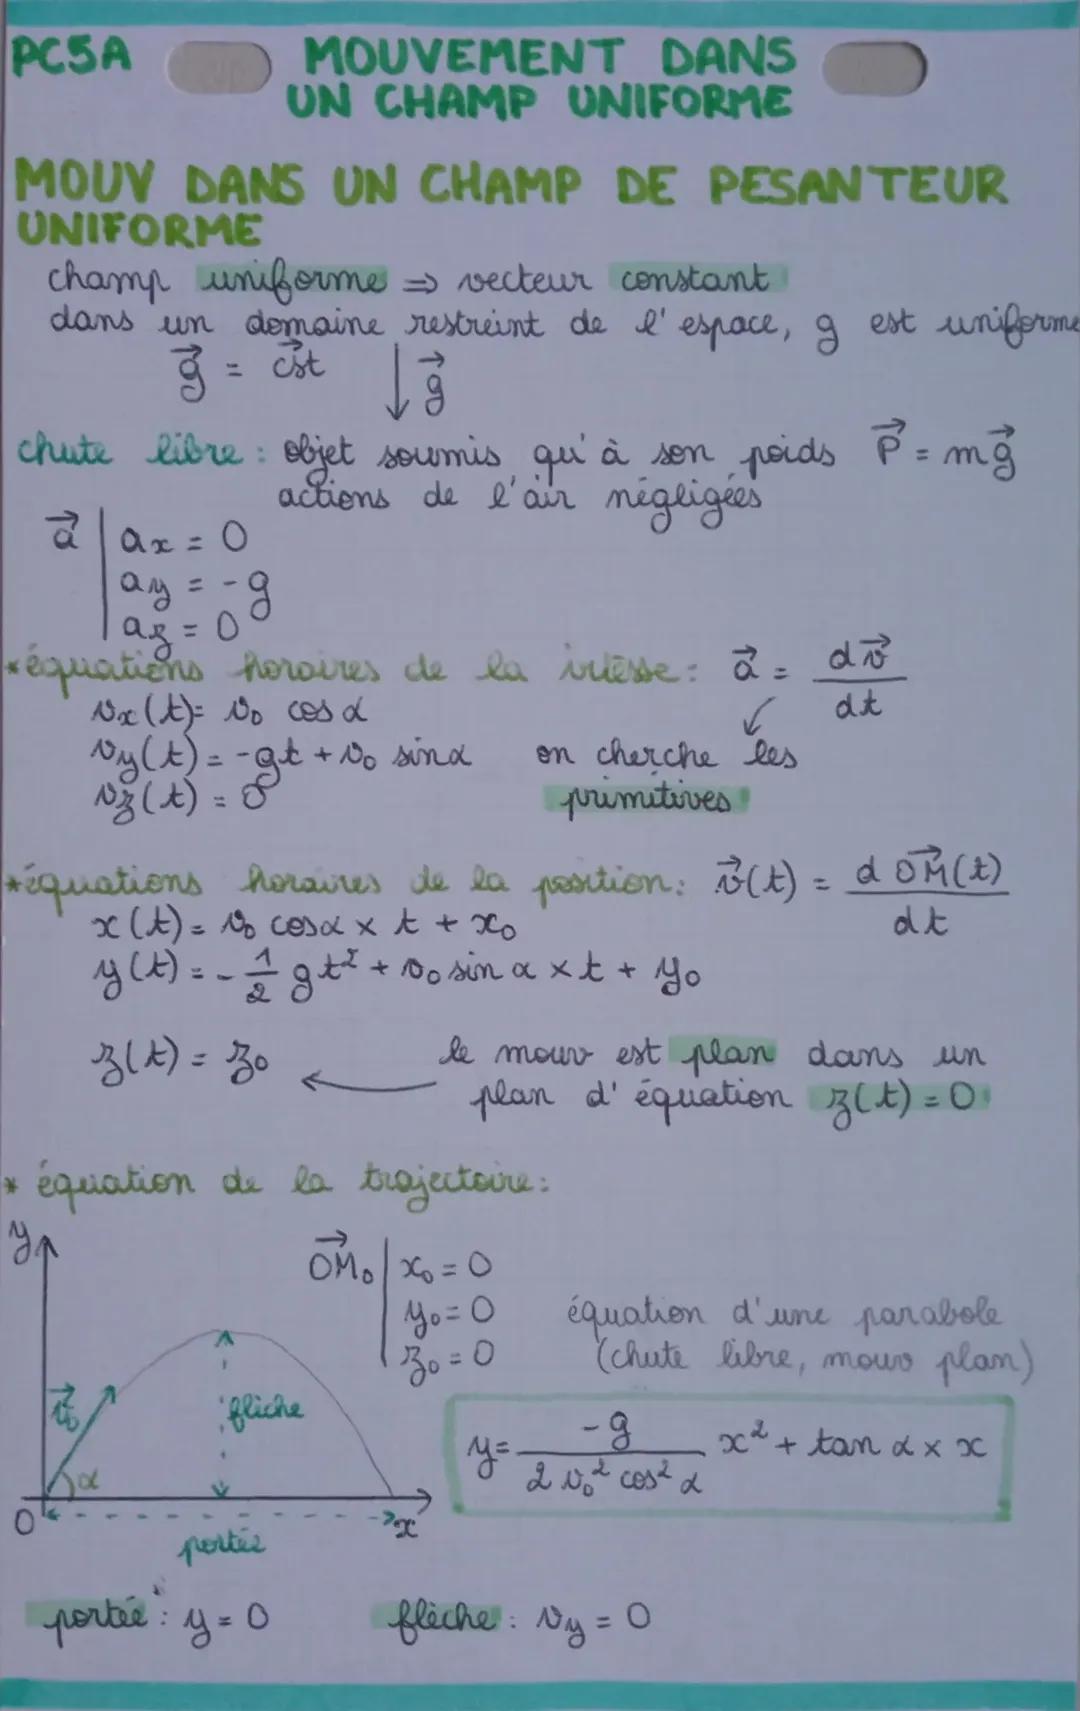 PC5A MOUVEMENT DANS
UN CHAMP UNIFORME
MOUV DANS UN CHAMP DE PESANTEUR
UNIFORME
champ uniforme ⇒ vecteur constant
dans un domaine restreint de l'espace, g est uniforme
g⃗ = cs⃗t ↓ g⃗
chute libre : objet soumis qu'à son poids P⃗ = mg⃗
actions de l'air négligées
a⃗ | ax = 0
ay = -g
az = 0
*équations horaires de la vitesse : a⃗ = dv⃗/dt
vx(t) = v₀ cos α
vy(t) = -gt + v₀ sin α on cherche les
vz(t) = 0 primitives
*équations horaires de la position : v⃗(t) = d OM⃗(t)/dt
x(t) = v₀ cos α × t + x₀
y(t) = -1/2 gt² + v₀ sin α × t + y₀
z(t) = z₀ ← le mouv est plan dans un
plan d'équation z(t) = 0
* équation de la trajectoire :
y
OM₀⃗ | x₀ = 0
y₀ = 0 équation d'une parabole
z₀ = 0 (chute libre, mouv plan)
v₀⃗ flèche
α
y = -g/(2 v₀² cos² α) x² + tan α × x
O x
portée
portée : y = 0 flèche : vy = 0